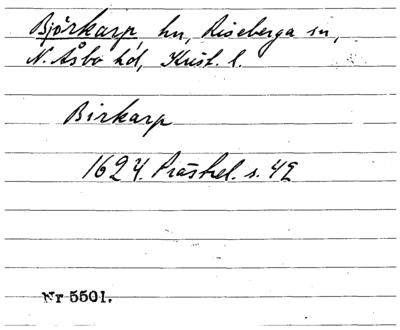 Björkarp, hn, Riseberga sn,
N. Åsbo hd, Krist. l.
Birkarp
1624. Prästrel. s. 42
Nr 5501.